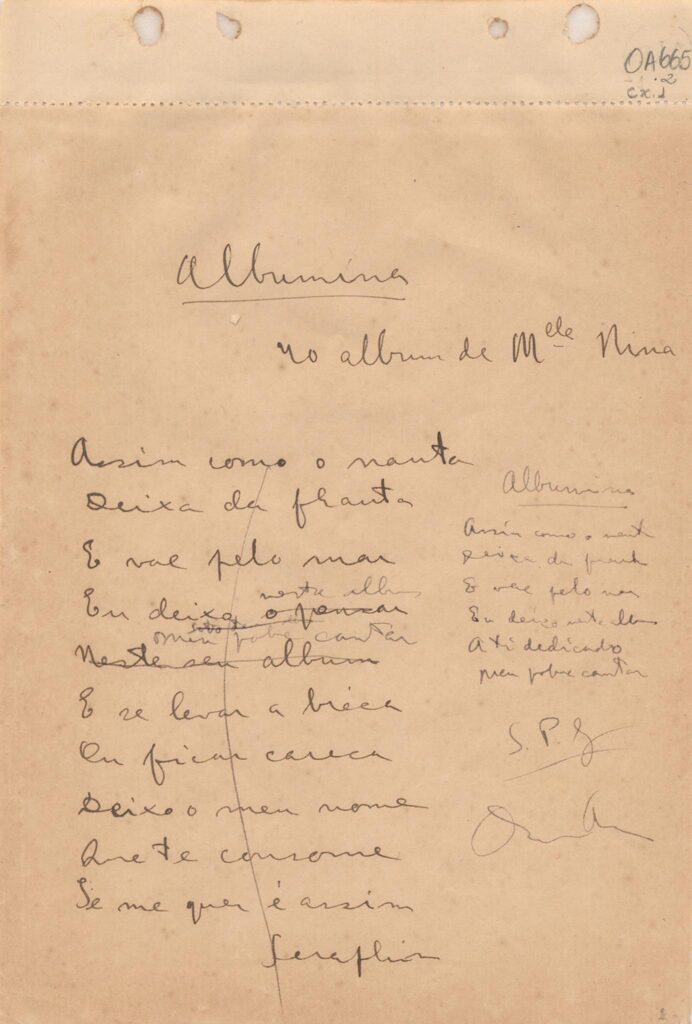 OA665
.2
cx.1
Albumina
no album de Mᵉˡᵉ Nina
Assim como o nauta
Deixa da frauta
E vae pelo mar
nesta album
Eu deixo o pensar
meu pobre cantar
Neste seu album
E se levar a bréca
Ou ficar careca
Deixo o meu nome
Que te consome
Se me quer é assim
Seraphim
Albumina
Assim como o nauta
Deixa da frauta
E vae pelo mar
Eu deixo nesta album
A ti dedicado
meu pobre cantar
S. P. G